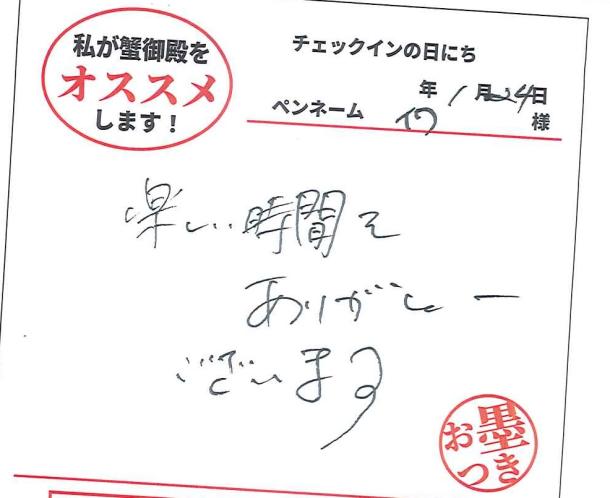 私が蟹御殿を
オススメ
します！
チェックインの日にち
年 1月24日
ペンネーム 様
楽しい時間を
ありがとー
ございます
お墨
つき